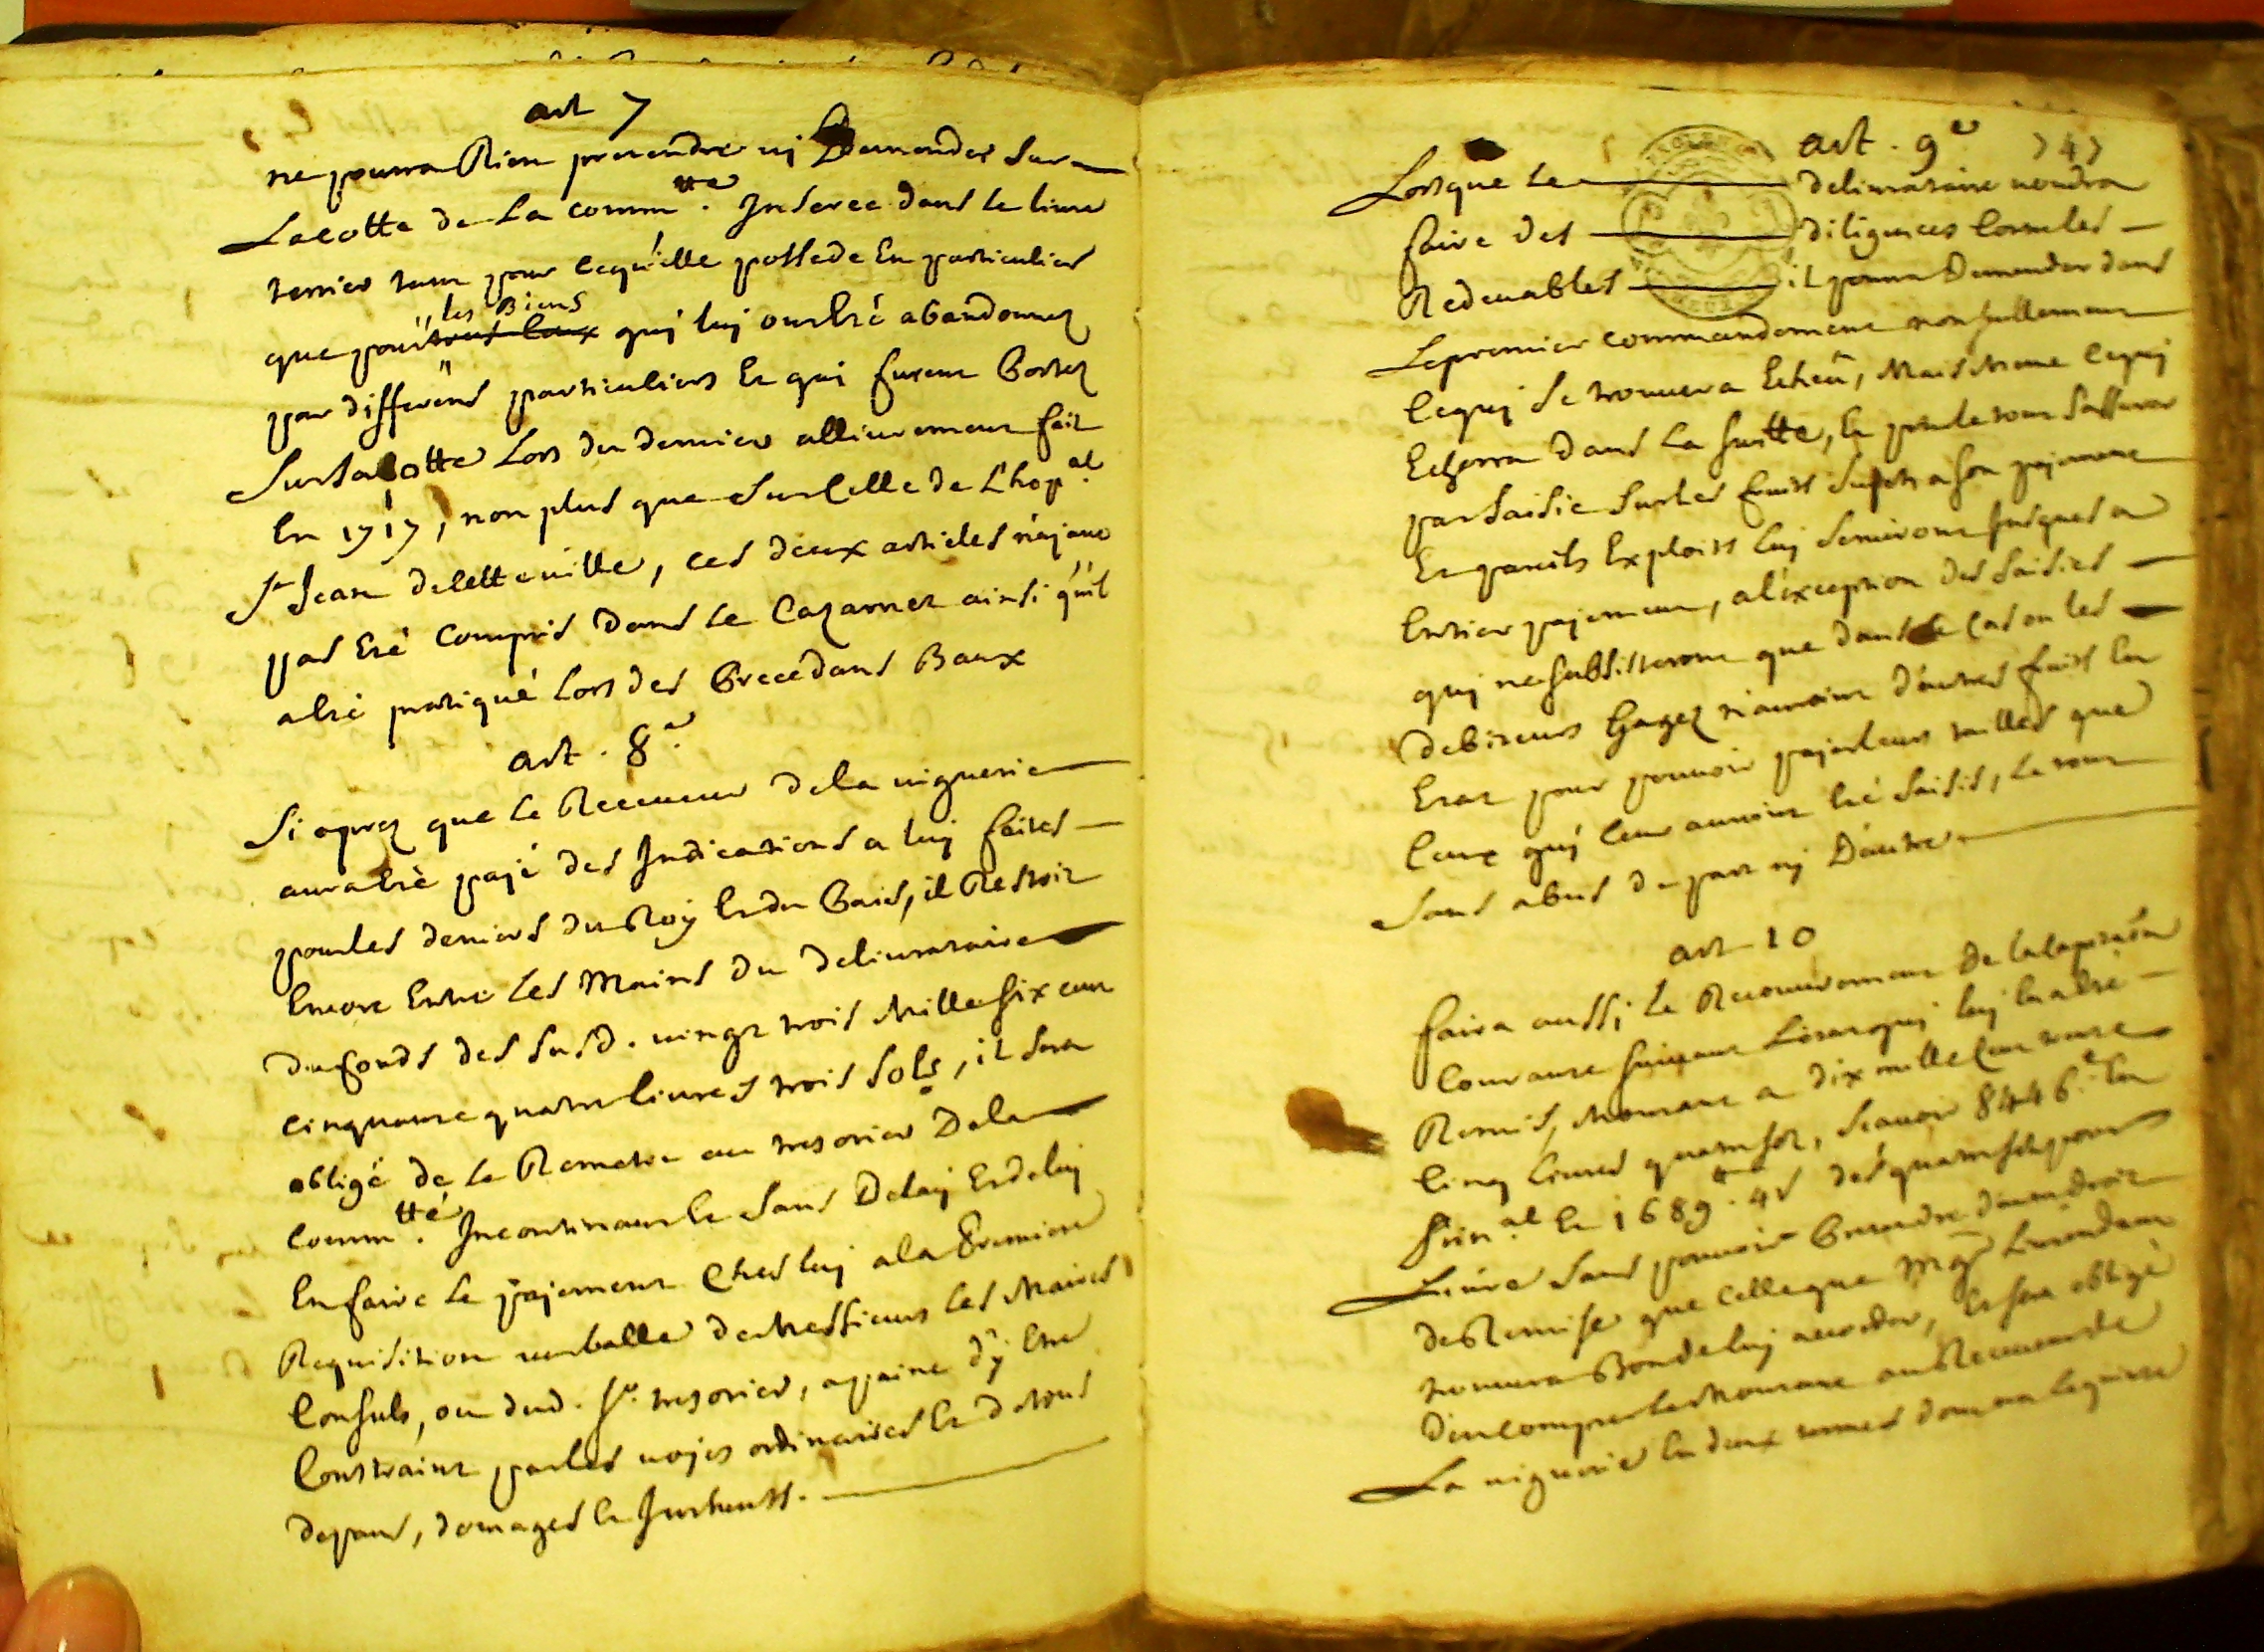 art 7
ne pourra Rien pretendre nj Demender sur
La cotte de La comm.tté Inseree dans le livre
terrier tant pour cequ'elle possede En particulier
que pour les Biens tous ceux quj luj ont Eté abandonnez
par differens particuliers Et qui furent Portez
Sur sa cotte Lors du dernier allivrement fait
En 1717, non plus que sur Celle de L'hop.al
St Jean de cette ville, ces deux articles n'ajant
pas Eté Compris Dans Le Cazarnet ainsi qu'il
a Eté pratiqué Lors des Precedans Baux
art. 8.e
Si aprez que Le Receveur de la viguerie
aura Eté pajé des Indications a luj faites
pour les deniers du Roy Et du Païs, il Restoit
Encore Entre Les Mains du Delivrataire
du fonds des susd. vingt trois Mille six cent
cinquante quatre livres trois sols, il sera
obligé de Le Remettre au tresorier De la
Comm.tté Incontinant Et Sans Delaj Et de luj
En faire Le pajement Ches luj a la Premiere
Requisition verballe de Messieurs Les Maires
Consuls, ou dud. Sr. tresorier, a paine d'ÿ Etre
Constraint par les vojes ordinaires Et de tous
depans, domages Et Interests.
art. 9e
747
Lorsque Le delivrataire voudra
faire des diligences Contre les
Redevables il pourra Demander dans
Le premier commandement non sullement
Cequj Se trouvera Echeu, Mais Meme Cequj
Echerra Dans La suitte, Et pendetout s'assurer
par Saisie Sur Les fruits sujets a son pajement
Et pareils Exploits luj serviront Jusques a
Entier pajement, a l'exception des Saisies
quj ne subsisteront que dans le Cas ou les
Debiteurs Gagez n'auroint d'autres fruits En
Etat pour pouvoir pajer leurs tailles que
Ceux quj leur auroint Eté Saisis, Le tout
Sans abus De part nj D'autre
art 10
faira aussj Le Recouvrement De la Capitation
Courante suivant L'etat quj luj En a Eté
Remis, Montant a dix mille Cent trente
Cinq Livres quatre sols, Scavoir 8446.tt En
prin.al Et 1689.tt 4s des quatre sols pour
Livre Sans pouvoir Pretendre d'autre droit
de Remise que Celle que Mgr L'intendant
trouvera Bon de luj accorder, Et sera obligé
D'en Compter Le Montant au Receveur de
La viguerie En deux termes Dont